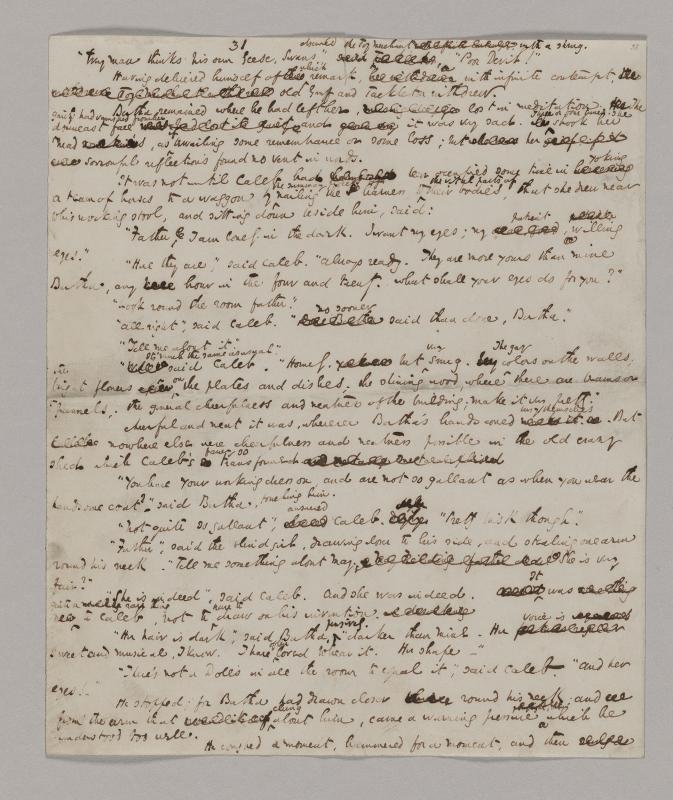 31
observed the Toy merchant with a shrug.
"Every man thinks his own Geese, Swans" "Poor Devil!"
which
Having delivered himself of remark, with infinite contempt,
old Gruff and Tackleton withdrew.
Bertha remained where he had left her, lost in meditation. The
gaiety had vanished from her
downcast face and it was very sad. Three or four times, she shook her
head as bewailing some remembrance or some loss; but her
sorrowful reflections found no vent in words.
It was not until Caleb had been occupied some time in yoking
a team of horses to a waggon by the summary process of nailing the harness to the vital parts of their bodies, that she drew near
to his working stool, and sitting down beside him, said:
"Father, I am lonely in the dark. I want my eyes; my patient willing
eyes."
"Here they are," said Caleb. "always ready. They are more yours than mine
Bertha, any hour in the four and twenty. what shall your eyes do for you?"
"Look round the room father."
"all right", said Caleb. "no sooner said than done, Bertha."
"Tell me about it."
"It's much the same as usual" said Caleb. "Homely, but very snug. The gay colors on the walls,
the
bright flowers on the plates and dishes, the shining wood, where there are beams or
pannels; the general cheerfulness and neatness of the building, make it very pretty."
Cheerful and neat it was, wherever Bertha's hands could busy themselves. But
nowhere else, were cheerfulness and neatness possible in the old crazy
shed which Caleb's fancy so transformed
"You have your working dress on, and are not so gallant as when you wear the
handsome coat?" said Bertha, touching him.
"Not quite so gallant", answered Caleb. "Pretty brisk though".
"Father", said the blind girl, drawing close to his side, and stealing one arm
round his neck. "Tell me something about May, She is very
fair?"
"She is indeed", said Caleb. And she was indeed. It was
quite a rare thing
to Caleb, not to have to draw on his invention.
"Her hair is dark", said Bertha, pensively, "darker than mine. Her voice is
sweet and musical, I know. I have often loved to hear it. Her shape —"
"There's not a Doll's in all the room to equal it", said Caleb. "and her
eyes!—"
He stopped; for Bertha had drawn closer round his neck; and
from the arm that clung about him, came a warning pressure which he
understood too well.
He coughed a moment, hammered for a moment, and then